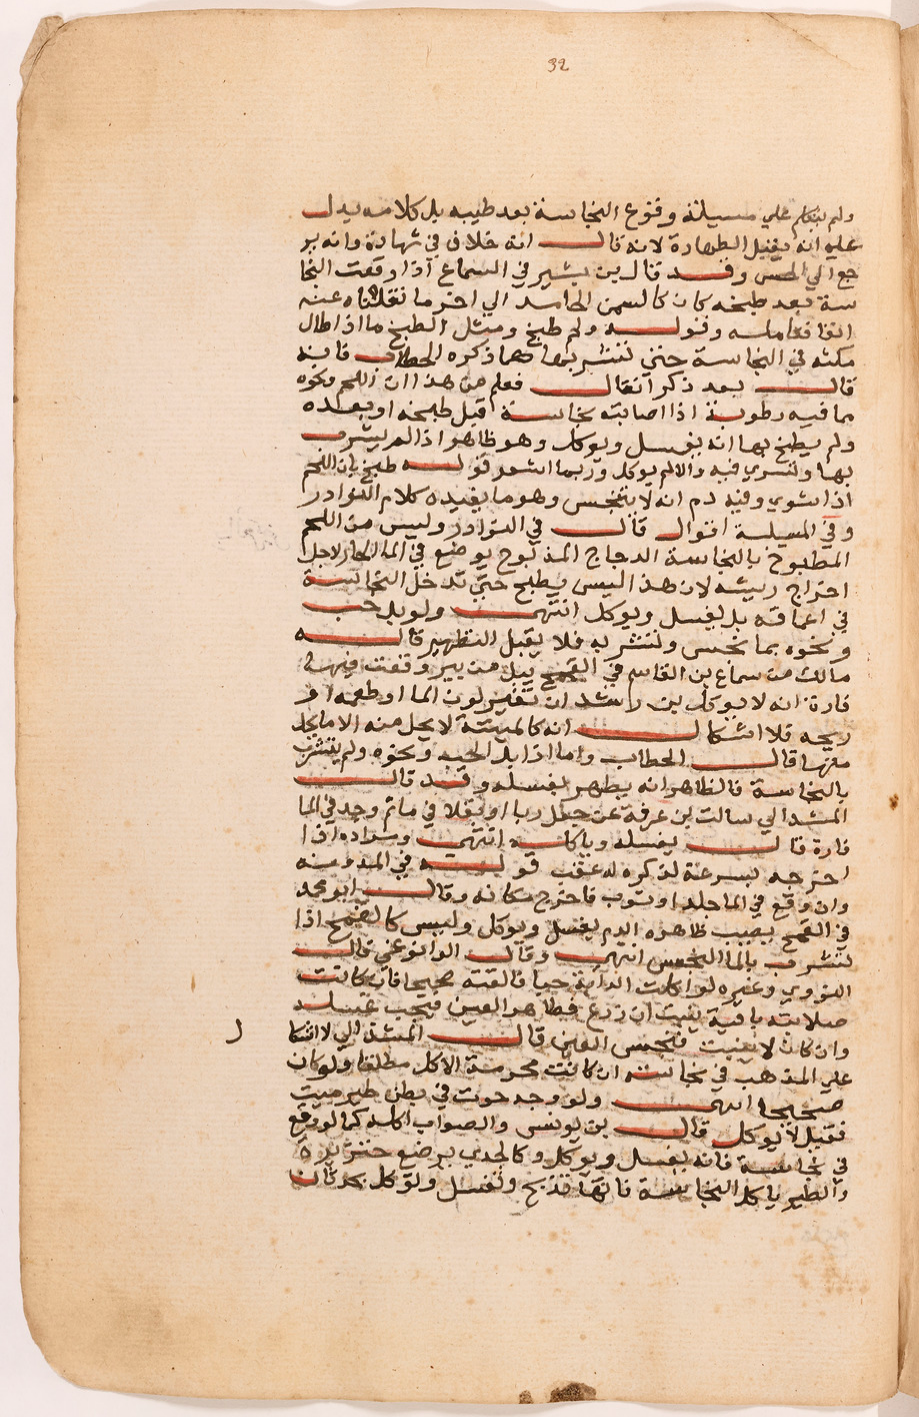 32
ولم يتكلم علي مسيلة وقوع النجاسة بعد طيبه بل كلامه يدل
عليه انه يقبل الطهارة لانه قال انه خلاف في شهادة وانه ير
جع الي الحس وقد قال بن بشير في السماع اذا وقعت النجا
سة بعد طبخه كان كالسمن الجامد الي اخر ما نقلناه عنه
انفا فتامله وقوله ولم طبخ ومثل الطبخ ما اذا طال
مكثه في النجاسة حتي تتشربها كما ذكره الحطاب فانه
قال بعد ذكر انقال فعلم من هذا ان اللحم ونحوه
مما فيه رطوبة اذا اصابته نجاسة قبل طبخه او بعده
ولم يطبخ بها انه يغسل ويوكل وهو ظاهر اذا لم يتشرب
بها وتسري فيه والا لم يوكل وربما اشعر قوله طبخ بان اللحم
اذا شوي وفيه دم انه لا ينجس وهو ما يفيده كلام النوادر
وفي المسيلة اقوال قال في النوادر وليس من اللحم
المطبوخ بالنجاسة الدجاج المذبوح يوضع في الما الحار لاجل
اخراج ريشه لان هذا ليس بطبخ حتي تدخل النجاسة
في اعماقه بل يغسل ويوكل انتهي ولو بل حب
ونحوه بما نجس وتشربه فلا يقبل التطهير قاله
مالك من سماع بن القاسم في القمح يبل من بير وقعت فيها
فارة انه لا يوكل بن راشد ان تغير لون الما او طعمه او
ريحه فلا اشكال انه كالميتة لا يحل منه الا ما يحل
منها قال الحطاب واما اذا بل الحب ونحوه ولم يتشرب
بالنجاسة فالظاهر انه يطهر بغسله وقد قال
المشدالي سالت بن عرفة عن جعل ربا او بقلا في ما ثم وجد في الما
فارة قال يغسله وياكله انتهي ومراده اذا
اخرجه بسرعة لذكره له عقب قوله في المدونة
وان وقع في الما جلد او ثوب فاخرج مكانه وقال ابو محمد
في القمح يصيب ظاهره الدم يغسل ويوكل وليس كالقمح اذا
تشرب بالما النجس انتهي وقال الوانوغي قال
النووي وغيره لو اكلت الدابة حبا فالقته صحيحا فان كانت
صلابته باقية بحيث ان زرع فطاهر العين فيجب غسله
وان كان لا ينبت فنجس العين قال المشدالي لا اشكا
ل
علي المذهب في نجاسته ان كانت محرمة الاكل مطلقا ولو كان
صحيحا انتهي ولو وجد حوت في بطن طير ميت
فقيل لا يوكل قال بن يونس والصواب اكله كما لو وقع
في نجاسة فانه يغسل ويوكل وكالجدي يرضع خنزيرة
والطير ياكل النجاسة فانها تذبح وتغسل وتوكل بحدثان